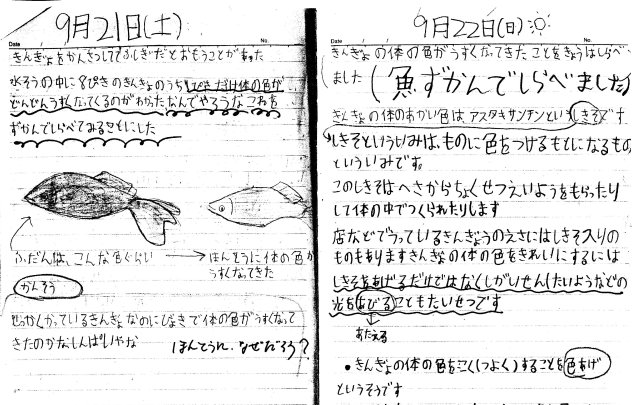 9月21日(土)
Date
No.
きんぎょをかんさつしててふしぎだとおもうことがあった
水そうの中に8ぴきのきんぎょのうち1ぴきだけ体の色が
どんどんうすくなってくるのがわかった。なんでやろうな これを
ずかんでしらべてみることにした
ふだんは、こんな色ぐらい → ほんとうに体の色が
うすくなってきた
かんそう
せっかくかっているきんぎょなのに1ぴきで体の色がうすくなって
きたのがなしんぱいやな ほんとうに、なぜだろう?
9月22日(日)
Date
No.
きんぎょの体の色がうすくなってきたことをきょうはしらべ
ました(魚ずかんでしらべました)
きんぎょの体のあかい色は、アスタキサンチンというしきそです。
しきそといういみは、ものに色をつけるもとになるもの
といういみです。
このしきそはへさからちょくせつえいようをもらったり
して体の中でつくられたりします
店などでうっているきんぎょうのえさにはしきそ入りの
ものもありますきんぎょの体の色をきれいにするには
しきそをあげるだけではなくしがいせん(たいようなどの
光をあびる)こともたいせつです
↓
あたえる
•きんぎょの体の色をこく(つよく)することを色あげ
というそうです